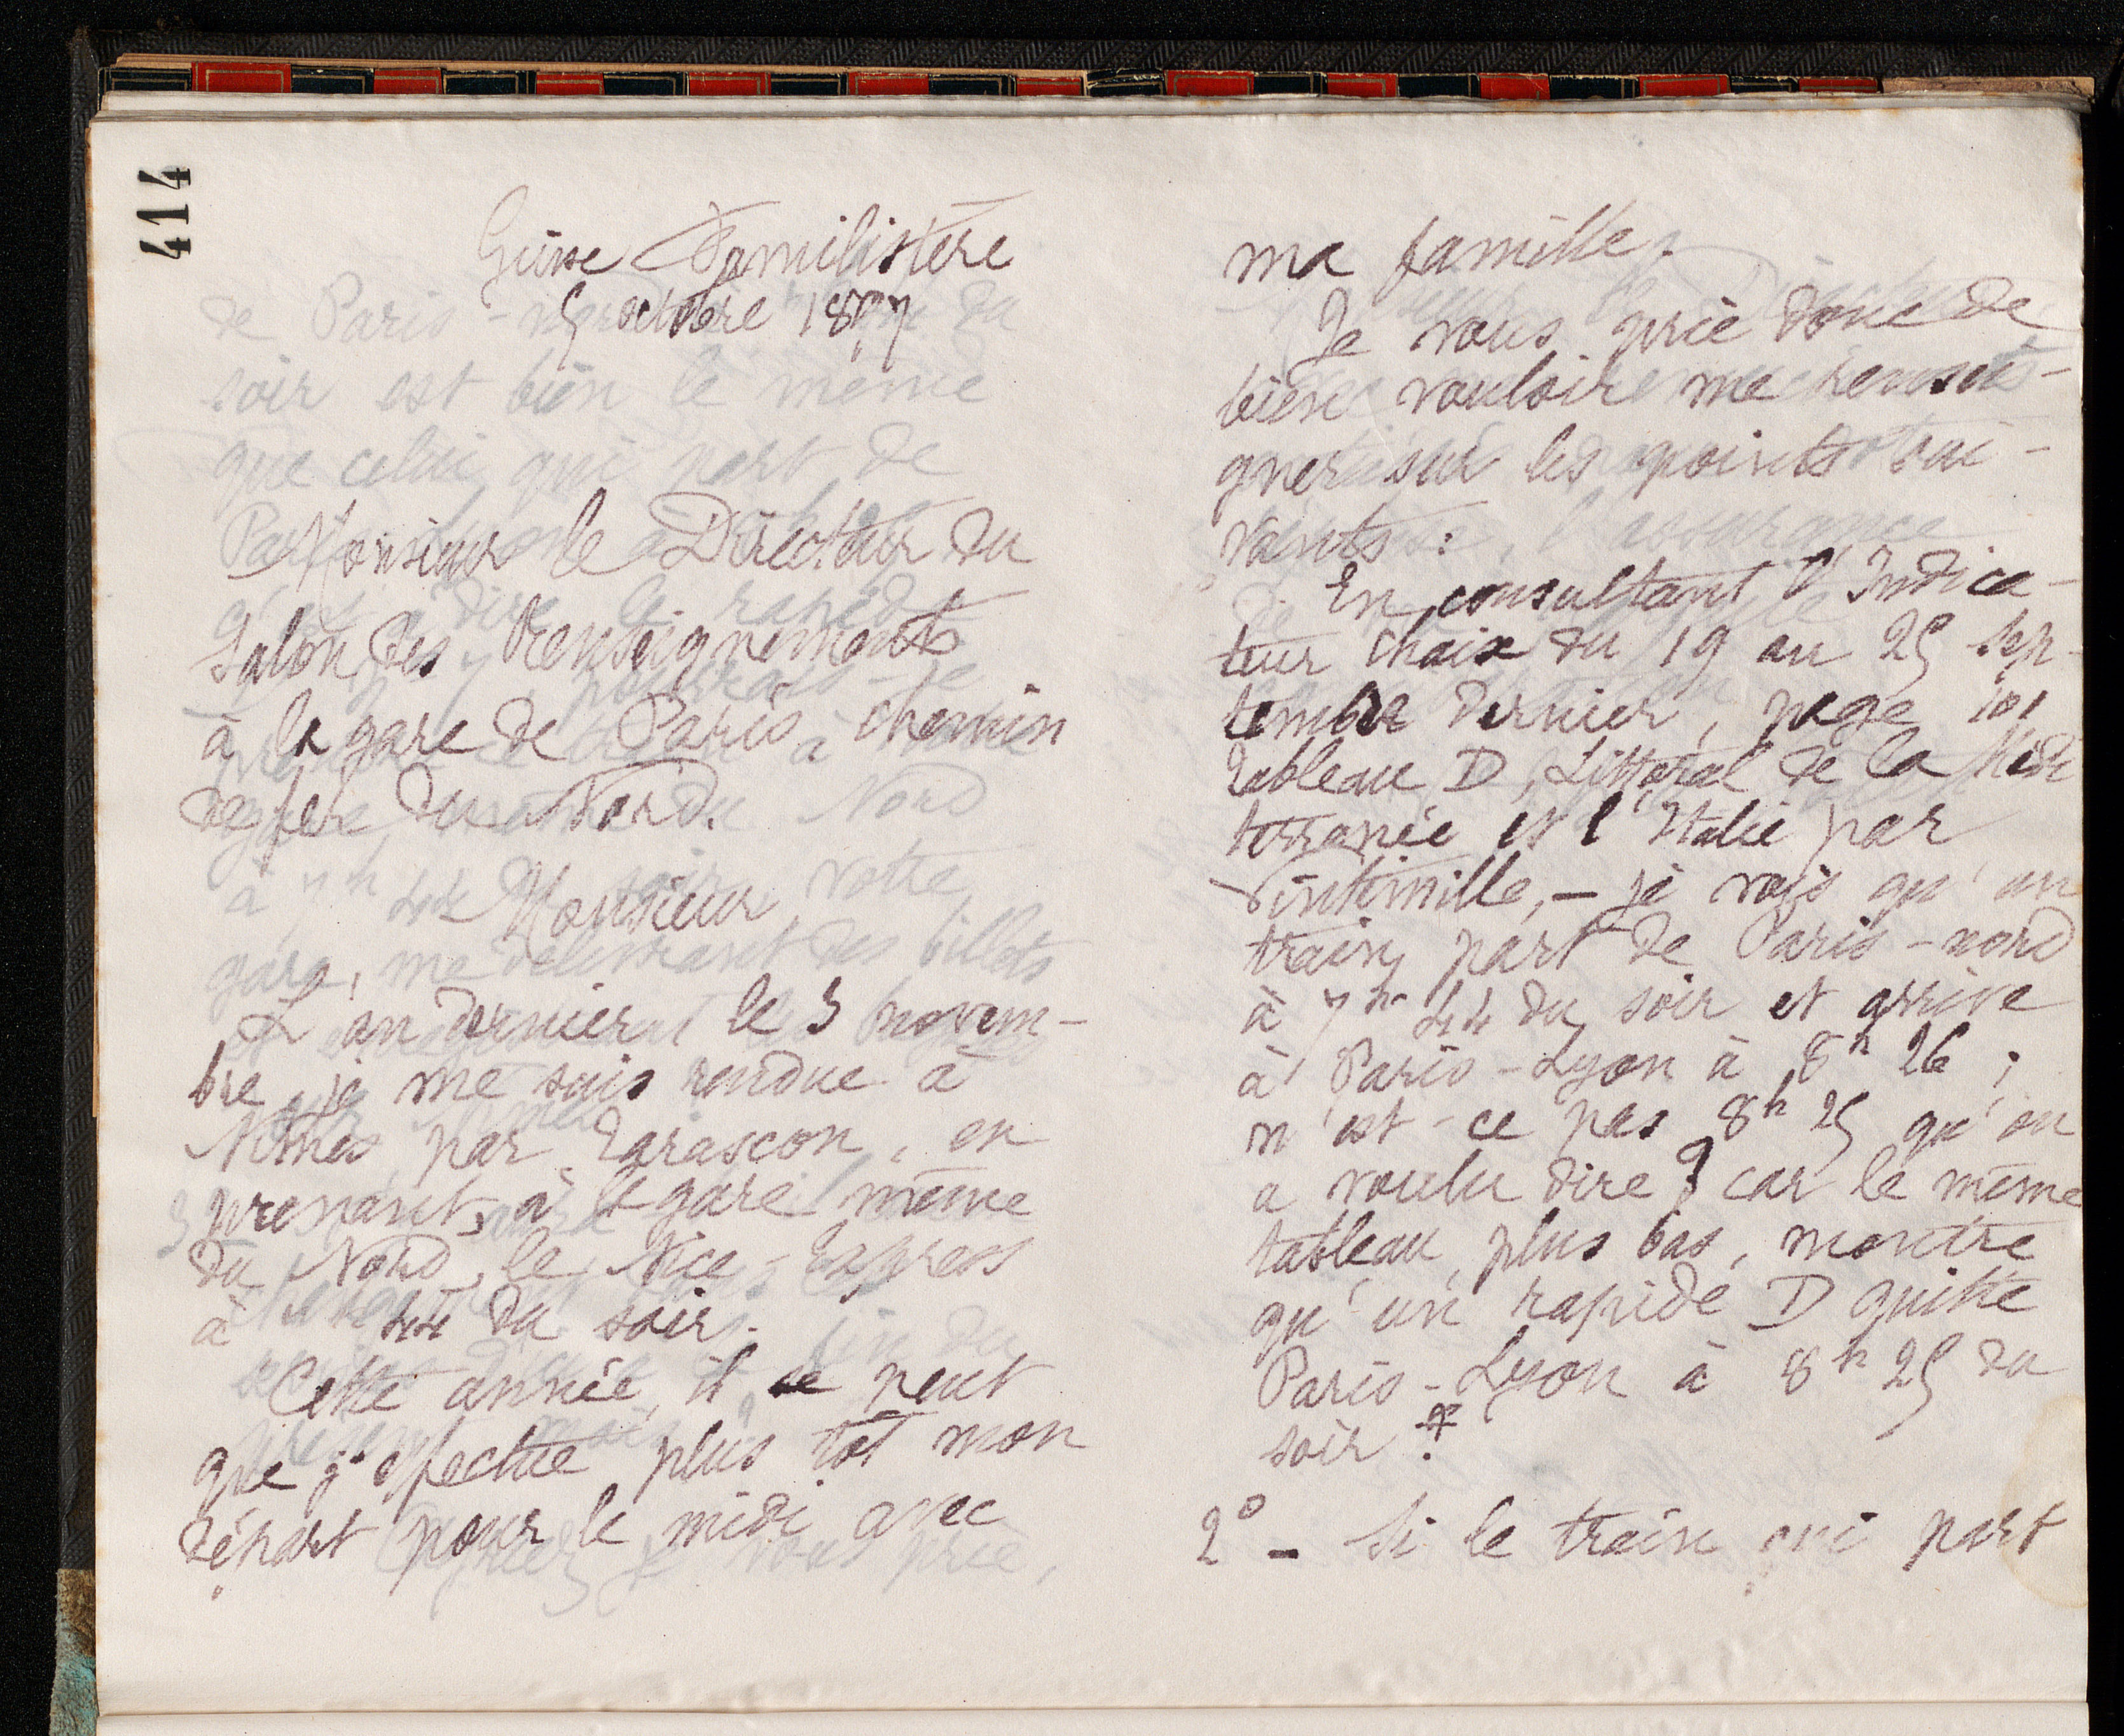 414
Guise Familistère
5 octobre 1897
Monsieur le Directeur du
Salon des Renseignements
à la gare de Paris, chemin
de fer du Nord.
Monsieur
L'an dernier le 3 novem-
bre, je me suis rendue à
Nîmes par Tarascon, en
prenant, à la gare même
du Nord, le Nice-Express
à 44 du soir.
Cette année, il se peut
que j'effectue plus tôt mon
départ pour le midi avec
ma famille.
Je vous prie donc de
bien vouloir me rensei-
gner sur les points sui-
vants :
En consultant l'Indica-
teur Chaix du 19 au 25 sep-
tembre dernier, page 101
tableau D, Littoral de la Médi
terranée et l'Italie par
Vintimille, - je vois qu'un
train part de Paris-nord
à 7h 44 du soir et arrive
à Paris-Lyon à 8h 26 ;
n'est-ce pas 8h 25 qu'on
a voulu dire ? car le même
tableau, plus bas, montre
qu'un rapide D quitte
Paris-Lyon à 8h 25 du
soir ?
2° - Si le train qui part